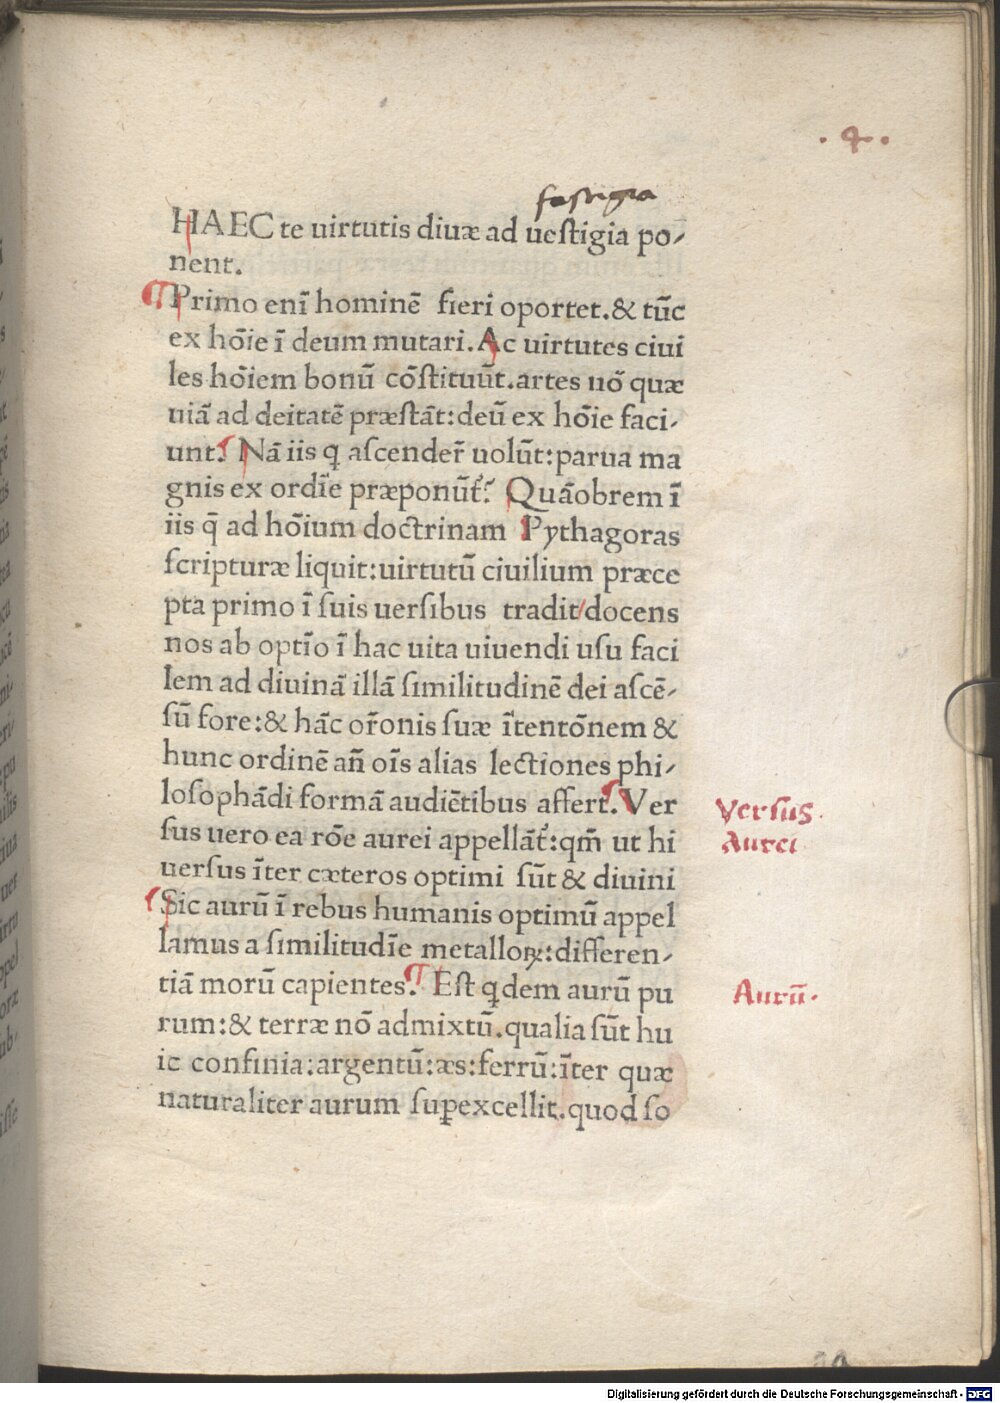 · 4 ·
fastigia
HAEC te uirtutis diuæ ad ueſtigia po⸗
nent.
Primo enī hominē fieri oportet.& tūc
ex hōie ī deum mutari. Ac uirtutes ciui
les hōiem bonū cōſtituūt.artes uō quæ
uiā ad deitatē præſtāt:deū ex hōie faci⸗
unt. Nā iis q aſcender̄ uolūt:parua ma
gnis ex ordīe præponūt᷑. Quāobrem ī
iis q̄ ad hōium doctrinam Pythagoras
ſcripturæ liquit:uirtutū ciuilium præce
pta primo ī ſuis uerſibus tradit/docens
nos ab optīo ī hac uita uiuendi uſu faci
lem ad diuinā illā ſimilitudinē dei aſcē⸗
ſū fore:& hāc or̄onis ſuæ ītentōnem &
hunc ordinē an̄ oīs alias lectiones phi⸗
loſophādi formā audiētibus affert. Ver
ſus uero ea rōe aurei appellāt᷑:qm̄ ut hi
uerſus īter cæteros optimi ſūt & diuini
Sic aurū ī rebus humanis optimū appel
lamus a ſimilitudīe metalloꝝ:differen⸗
tiā morū capientes. Eſt qdem aurū pu
rum:& terræ nō admixtū.qualia ſūt hu
ic confinia:argentū:æs:ferrū:īter quæ
naturaliter aurum ſuꝑexcellit.quod ſo
Verſus
Aurei
Aurū·
Digitalisierung gefördert durch die Deutsche Forschungsgemeinschaft - DFG